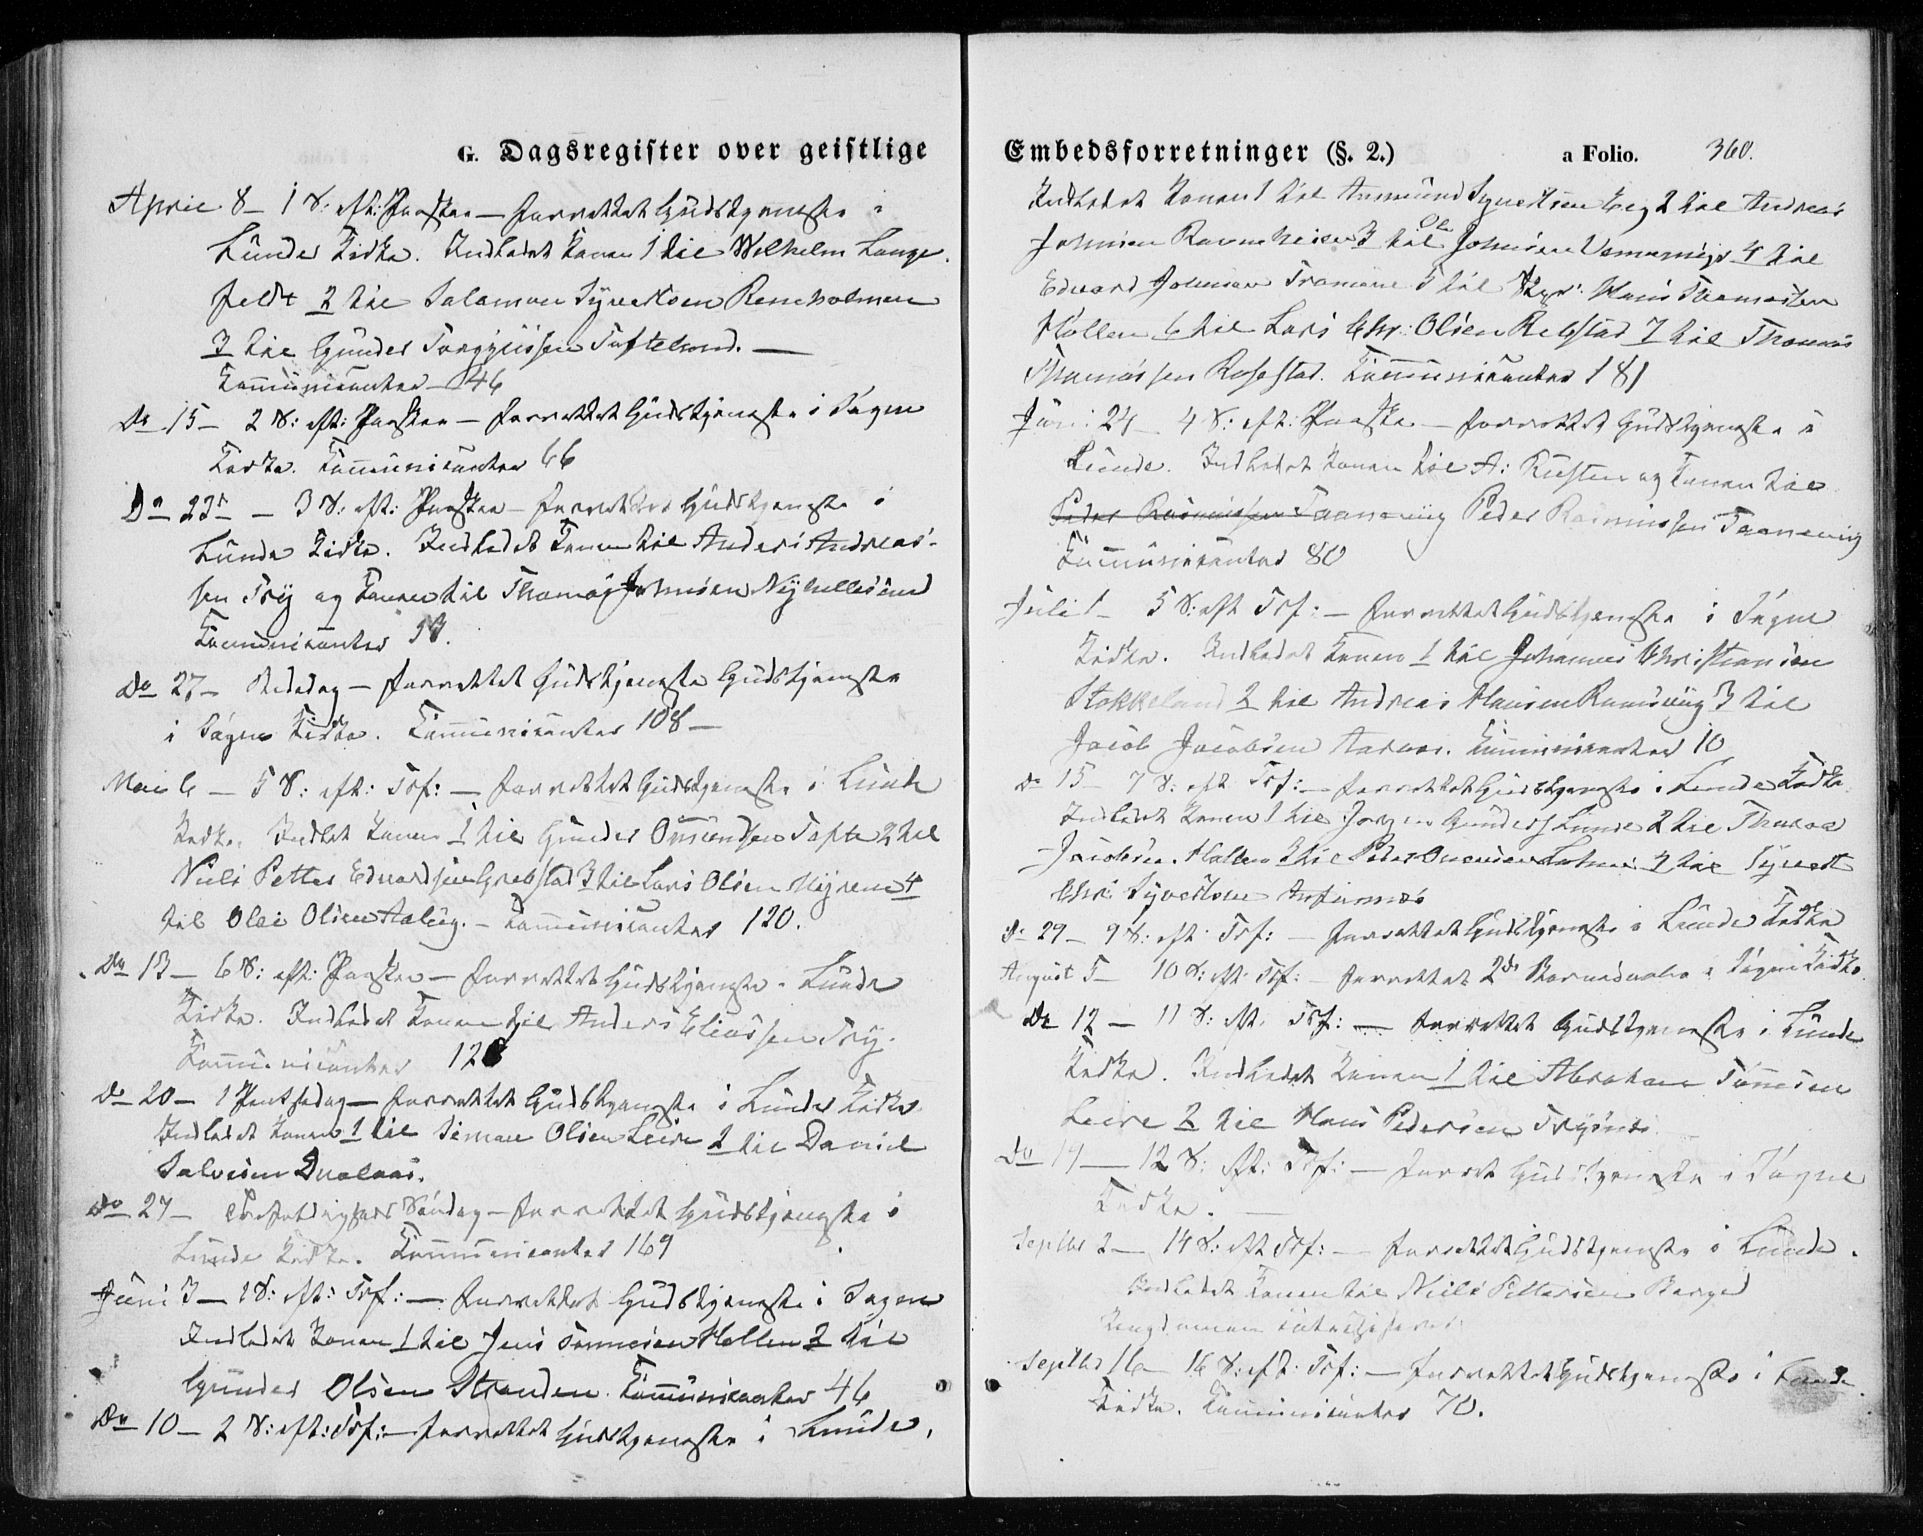 G. Dagsregister over geistlige
April 8 – 1 S: eft: Paaske – forrettet Gudstjeneste i
Lunde Kirke. Indledet Konen 1 til Wilhelm Lange-
feldt 2 til Salamon Syvertsen Reneholmen
3 til Gunder Torgjussen Tofteland. –
Kommunicanter – 46
Do 15 – 2 S: eft: Paaske – forrettet Gudstjeneste i Søgne
Kirke. Kommunicanter 66
Do 23 – 3 S: eft: Paaske – forrettet Gudstjeneste i
Lunde Kirke. Indledet Konen til Anders Andreas-
sen Try og Konen til Thomas Johnsen Ny Hellesund
Kommunicanter
Do 27 – Bededag – forrettet Gudstjeneste Gudstjeneste
i Søgne Kirke. Kommunicanter 108 –
Mai 6 – 5 S: eft: Trf: – forrettet Gudstjeneste i Lunde
Kirke. Indlet Konen 1 til Gunder Omundsen Tofte 2 til
Niels Petter Edvardsen Grebstad 3 til Lars Olsen Myrene 4
til Ole Olsen – Kommunicanter 120.
Do 13 – 6 S: eft: Paaske – forrettet Gudstjeneste i Lunde
Kirke. Indledet Konen til Anders Eliassen Try.
Kommunicanter
Do 20 – 1 Pintsedag – forrettet Gudstjeneste i Lunde Kirke
Indledet Konen 1 til Simon Olsen Leire 2 til Daniel
Salvesen
Do 27 – Trefoldigheds Søndag – forrettet Gudstjeneste i
Lunde Kirke. Kommunicanter 169
Juni 3 – 1 S: eft: Trf: – forrettet Gudstjeneste i Søgne
Indledet Konen 1 til Jens Tønnesen Hollen 2 til
Gunder Olsen Stranden. Kommunicanter 46
Do 10 – 2 S: eft: Trf: – forrettet Gudstjeneste i Lunde.
Embedsforretninger (§. 2.) a Folio. 360.
Indledet Konen 1 til Aanund Syvertsen Eeg 2 til Andreas
Johnsen Ravnheien 3 til Ole Johnsen 4 til
Edvard Johnsen 5 til Hans Thomassen
Hollen 6 til Lars Chr: Olsen Repstad 7 til Thomas
Thomassen Rosestad. Kommunicanter 181
Juni 24 – 4 S: eft: Paaske – forrettet Gudstjeneste i
Lunde. Indledet Konen til A: og Konen til
Peder Rasmussen Taanevig Peder Rasmussen Taanevig
Kommunicanter 80
Juli 1 – 5 S: eft Trf: – forrettet Gudstjeneste i Søgne
Kirke. Indledet Konen 1 til Johannes Christiansen
Stokkeland 2 til Andreas Hansen Ramsvig 3 til
Jacob Jacobsen Aaros. Kommunicanter 10
Do 15 – 7 S: eft Trf: – forrettet Gudstjeneste i Lunde Kirke
Indledet Konen 1 til Jørgen Gunders Lunde 2 til
Jacobsen Hollen 3 til Peder til Syvert
Chr: Syvertsen
Do 29 – 9 S: eft: Trf: – forrettet Gudstjeneste i Lunde Kirke
August 5 – 10 S: eft: Trf: – forrettet 2de i Søgne Kirke
Do 12 – 11 S: eft: Trf: – forrettet Gudstjeneste i Lunde
Kirke. Indledet Konen 1 til Abraham Tønnesen
Leire 2 til Hans Pedersen Trysnes
Do 19 – 12 S: eft: Trf: – forret Gudstjeneste i Søgne
Kirke. –
Septbr 2 – 14 S: eft Trf: – forrettet Gudstjeneste i Lunde.
Indledet Konen til Niels Pettersen Berge
Ungdommen catechiseret
Septbr 16 – 16 S: eft: Trf: – forrettet Gudstjeneste i Lunde
Kirke. Kommunicanter 70.